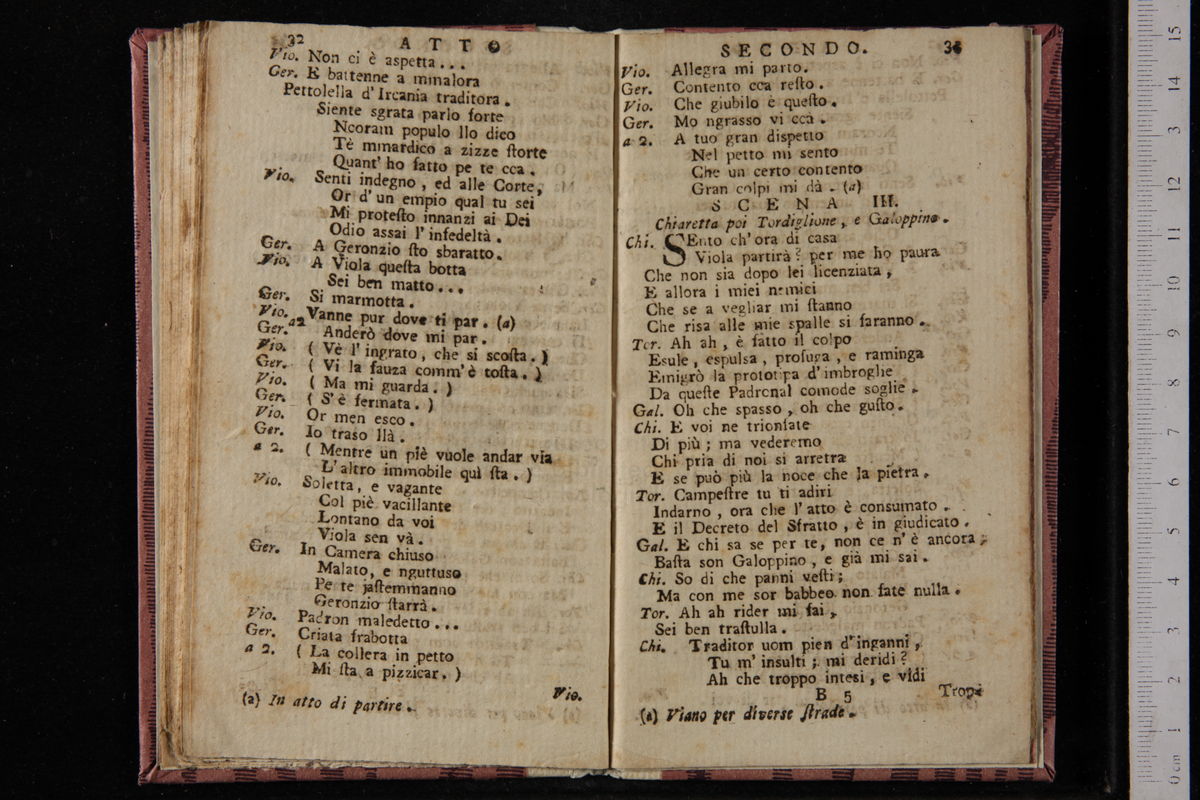 32 ATTO
Vio. Non ci è aspetta...
Ger. E battenne a mmalora
Pettolella d'Ircania traditora.
Siente sgrata parlo forte
Ncoram populo llo dico
Tè mmardico a zizze ſtorte
Quant' ho fatto pe te cca.
Vio. Senti indegno, ed alle Corte,
Or d'un empio qual tu sei
Mi proteſto innanzi ai Dei
Odio assai l'infedeltà.
Ger. A Geronzio ſto sbaratto.
Vio. A Viola queſta botta
Sei ben matto...
Ger. Si marmotta.
Vio. Vanne pur dove ti par. (a)
Ger. a2 Anderò dove mi par.
Vio. ( Vè l'ingrato, che si scoſta. )
Ger. ( Vi la fauza comm'è toſta. )
Vio. ( Ma mi guarda. )
Ger. ( S'è fermata. )
Vio. Or men esco.
Ger. Io traso llà.
a 2. ( Mentre un piè vuole andar via
L'altro immobile quì ſta. )
Vio. Soletta, e vagante
Col piè vacillante
Lontano da voi
Viola sen và.
Ger. In Camera chiuso
Malato, e nguttuso
Pe te jaſtemmanno
Geronzio ſtarrà.
Vio. Padron maledetto...
Ger. Criata frabotta
a 2. ( La collera in petto
Mi ſta a pizzicar. )
Vio.
(a) In atto di partire.
SECONDO.
Vio. Allegra mi parto.
Ger. Contento cca reſto.
Vio. Che giubilo è queſto.
Ger. Mo ngrasso vi ccà.
a 2. A tuo gran dispetto
Nel petto mi sento
Che un certo contento
Gran colpi mi dà. (a)
SCENA III.
Chiaretta poi Tordiglione, e Galoppino.
Chi. SEnto ch'ora di casa
Viola partirà? per me ho paura
Che non sia dopo lei licenziata,
E allora i miei nemici
Che se a vegliar mi ſtanno
Che risa alle mie spalle si faranno.
Tor. Ah ah, è fatto il colpo
Esule, espulsa, profuga, e raminga
Emigrò la prototipa d'imbroglie
Da queſte Padronal comode soglie.
Gal. Oh che spasso, oh che guſto.
Chi. E voi ne trionfate
Di più; ma vederemo
Chi pria di noi si arretra
E se può più la noce che la pietra.
Tor. Campeſtre tu ti adiri
Indarno, ora che l'atto è consumato.
E il Decreto del Sfratto, è in giudicato.
Gal. E chi sa se per te, non ce n'è ancora;
Baſta son Galoppino, e già mi sai.
Chi. So di che panni veſti;
Ma con me sor babbeo non fate nulla.
Tor. Ah ah rider mi fai,
Sei ben traſtulla.
Chi. Traditor uom pien d'inganni,
Tu m'insulti; mi deridi?
Ah che troppo intesi, e vidi
B 5
(a) Viano per diverse ſtrade.